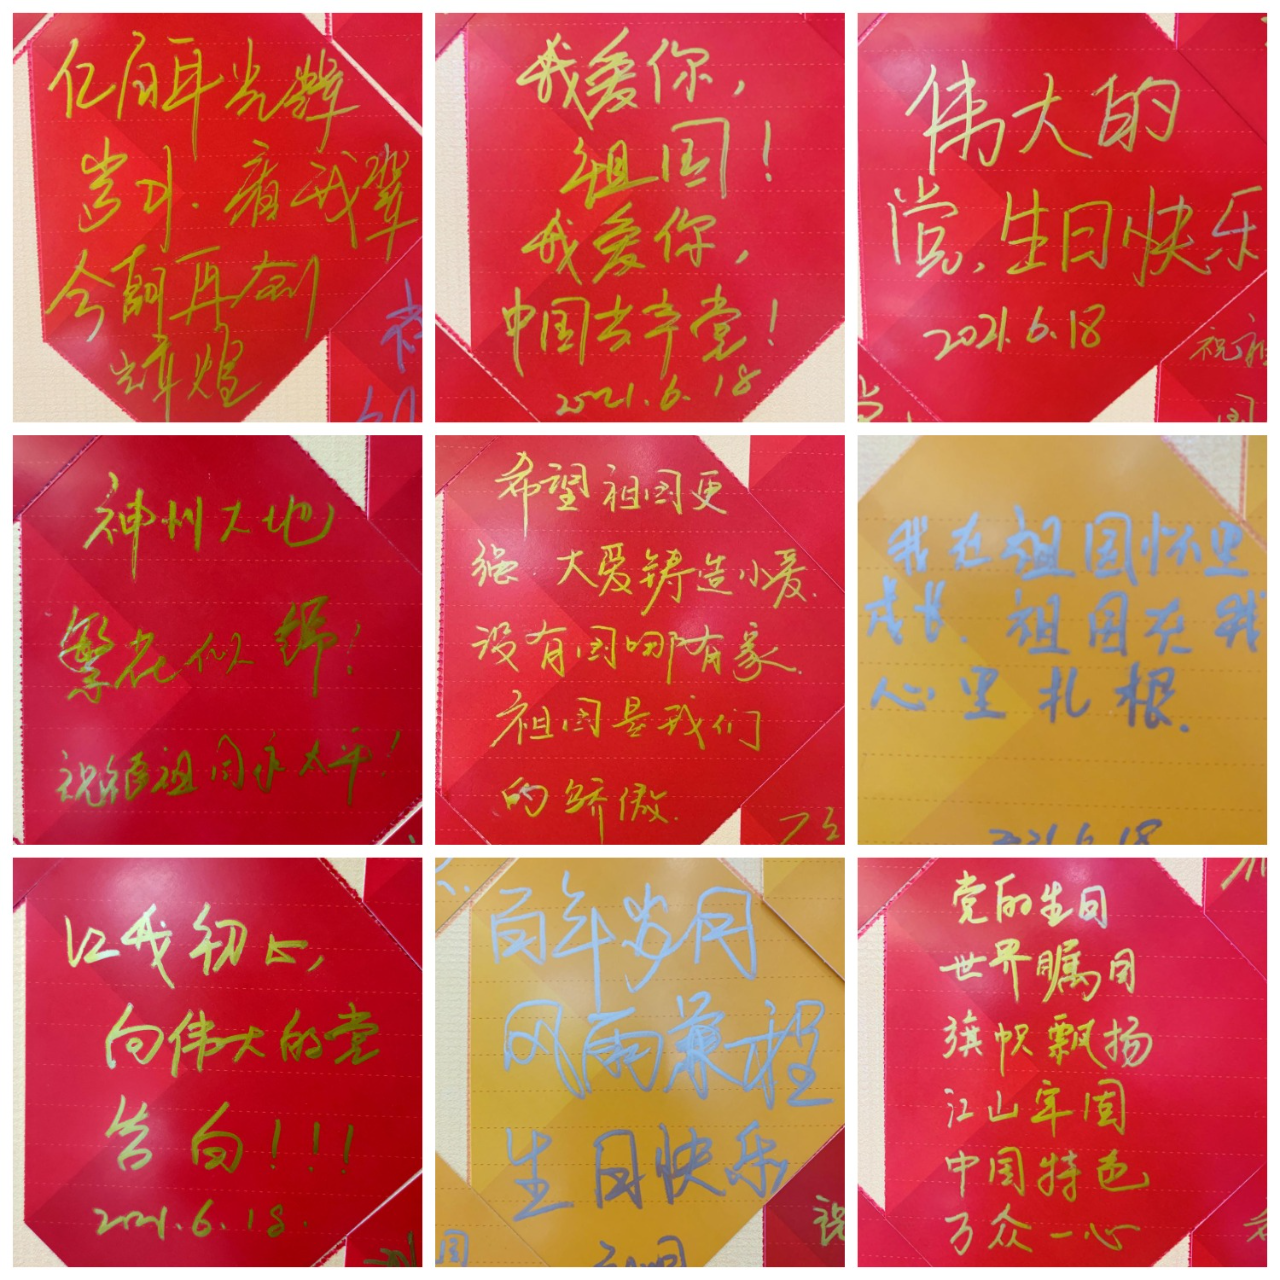 光辉
岁月.看我辈
今朝再创
辉煌
我爱你,
祖国!
我爱你,
中国共产党!
2021.6.18
伟大的
党,生日快乐
2021.6.18
神州大地
繁花似锦!
祝福祖国永太平!
希望祖国更
强 大爱铸造小爱.
没有国哪有家.
祖国是我们
的骄傲.
我在祖国怀里
成长.祖国在我
心里扎根.
2021.6.18
以我初心,
向伟大的党
告白!!!
2021.6.18.
百年岁月
风雨兼程
生日快乐
党的生日
世界瞩目
旗帜飘扬
江山牢固
中国特色
万众一心